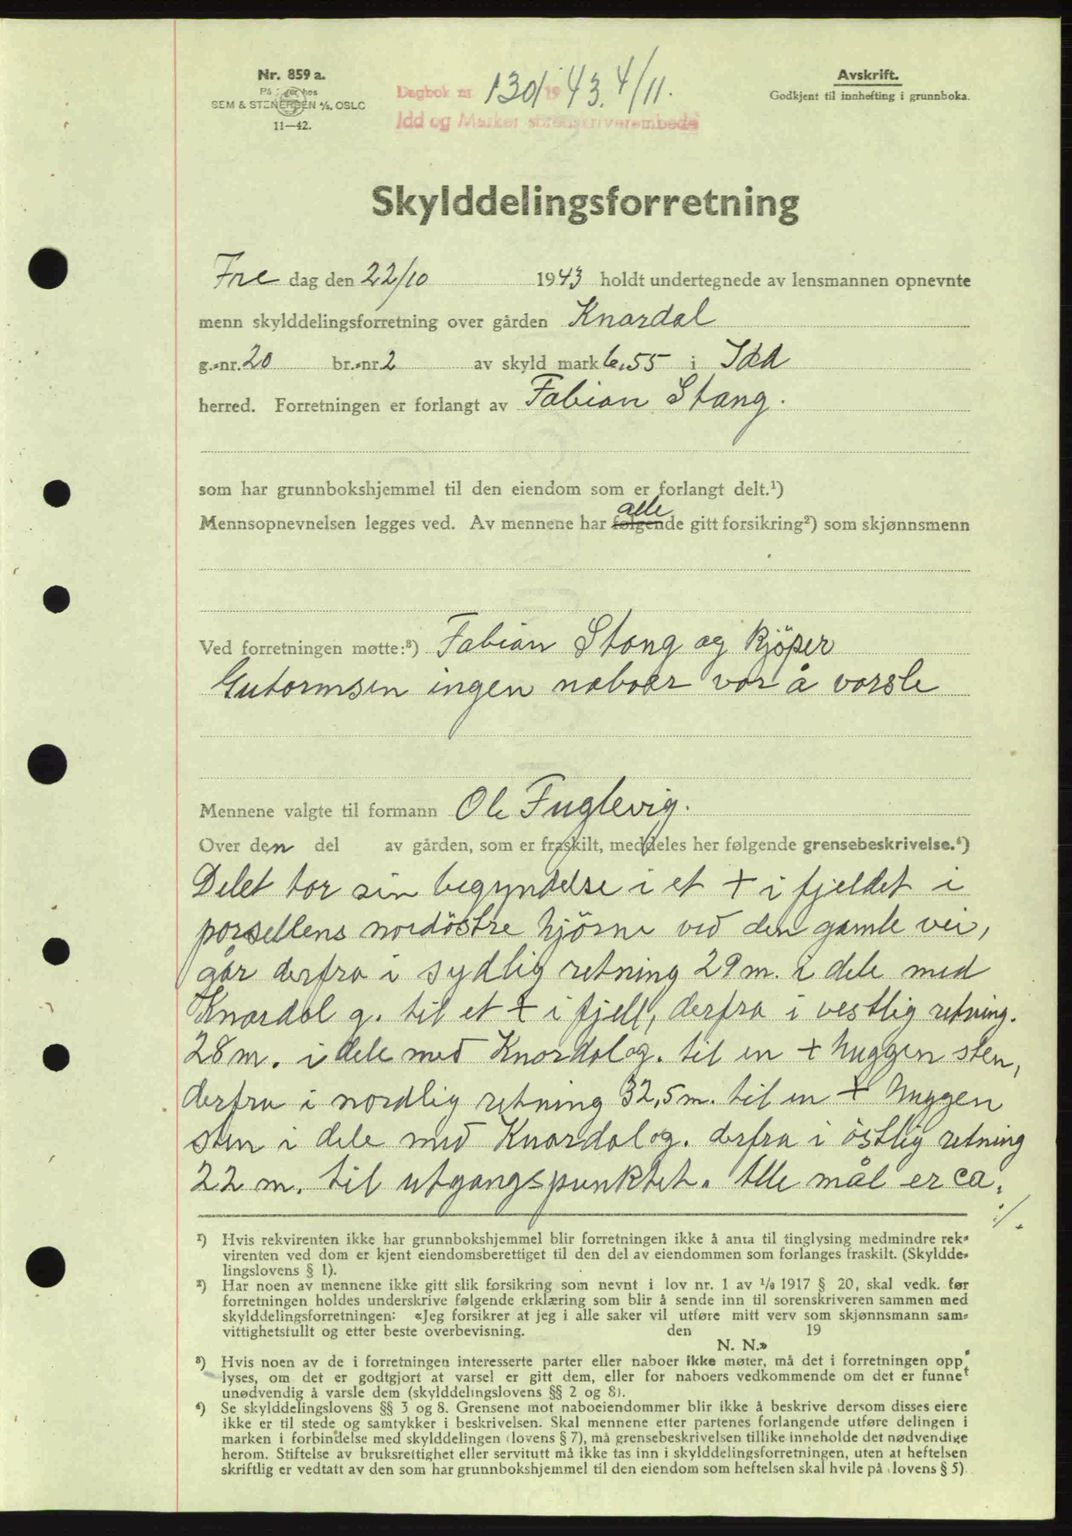 Nr. 859 a.
SEM & STENERSEN A/S. OSLO
11—42.
Dagbok nr 1301 19 43. 4/11.
Idd og Marker sorenskriverembede
Avskrift.
Godkjent til innhefting i grunnboka.
Skylddelingsforretning
Fre dag den 22/10 1943 holdt undertegnede av lensmannen opnevnte
menn skylddelingsforretning over gården Knardal
g.-nr. 20 br.-nr 2 av skyld mark 6,55 i Idd
herred. Forretningen er forlangt av Fabian Stang.
som har grunnbokshjemmel til den eiendom som er forlangt delt.¹)
alle
Mennsopnevnelsen legges ved. Av mennene har følgende gitt forsikring²) som skjønnsmenn
Ved forretningen møtte:³) Fabian Stang og kjöper
Gutormsen ingen naboer var å varsle
Mennene valgte til formann Ole Fuglevig.
Over den del av gården, som er fraskilt, meddeles her følgende grensebeskrivelse.⁴)
Delet tar sin begyndelse i et + i fjeldet i
porsellens nordöstre hjörne ved den gamle vei,
går derfra i sydlig retning 29 m. i dele med
Knardal g. til et + i fjell, derfra i vestlig retning.
28 m. i dele med Knardal og. til en + huggen sten,
derfra i nordlig retning 32,5 m. til en + huggen
sten i dele med Knardal og. derfra i östlig retning
22 m. til utgangspunktet. Alle mål er ca.
./.
¹) Hvis rekvirenten ikke har grunnbokshjemmel blir forretningen ikke å anta til tinglysing medmindre rek-
virenten ved dom er kjent eiendomsberettiget til den del av eiendommen som forlanges fraskilt. (Skyldde-
lingslovens § 1).
²) Har noen av mennene ikke gitt slik forsikring som nevnt i lov nr. 1 av 1/6 1917 § 20, skal vedk. før
forretningen holdes underskrive følgende erklæring som blir å sende inn til sorenskriveren sammen med
skylddelingsforretningen: «Jeg forsikrer at jeg i alle saker vil utføre mitt verv som skjønnsmann sam-
vittighetsfullt og etter beste overbevisning. den 19
N. N.»
³) Hvis noen av de i forretningen interesserte parter eller naboer ikke møter, må det i forretningen opp
lyses, om det er godtgjort at varsel er gitt dem, eller for naboers vedkommende om det er funnet
unødvendig å varsle dem (skylddelingslovens §§ 2 og 8).
⁴) Se skylddelingslovens §§ 3 og 8. Grensene mot naboeiendommer blir ikke å beskrive dersom disses eiere
ikke er til stede og samtykker i beskrivelsen. Skal mennene etter partenes forlangende utføre delingen i
marken i forbindelse med skylddelingen (lovens § 7), må grensebeskrivelsen tillike inneholde det nødvendige
herom. Stiftelse av bruksrettighet eller servitutt må ikke tas inn i skylddelingsforretningen, uten at heftelsen
skriftlig er vedtatt av den som har grunnbokshjemmel til den eiendom som heftelsen skal hvile på (lovens § 5)